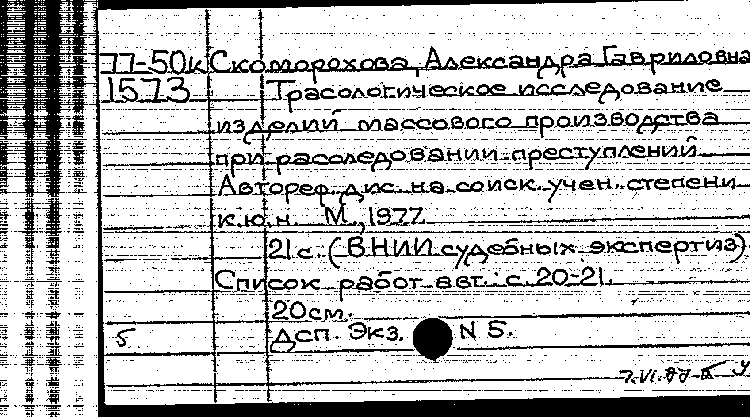 77-50к Скоморохова, Александра Гавриловна
1573 Трасологическое исследование
изделий массового производства
при расследовании преступлений
Автореф. дис. на соиск. учен. степени
к.ю.н. М., 1977.
21 с. (ВНИИ судебных экспертиз)
Список работ авт.: с. 20-21.
20 см.
5 ДСП. Экз. N 5.